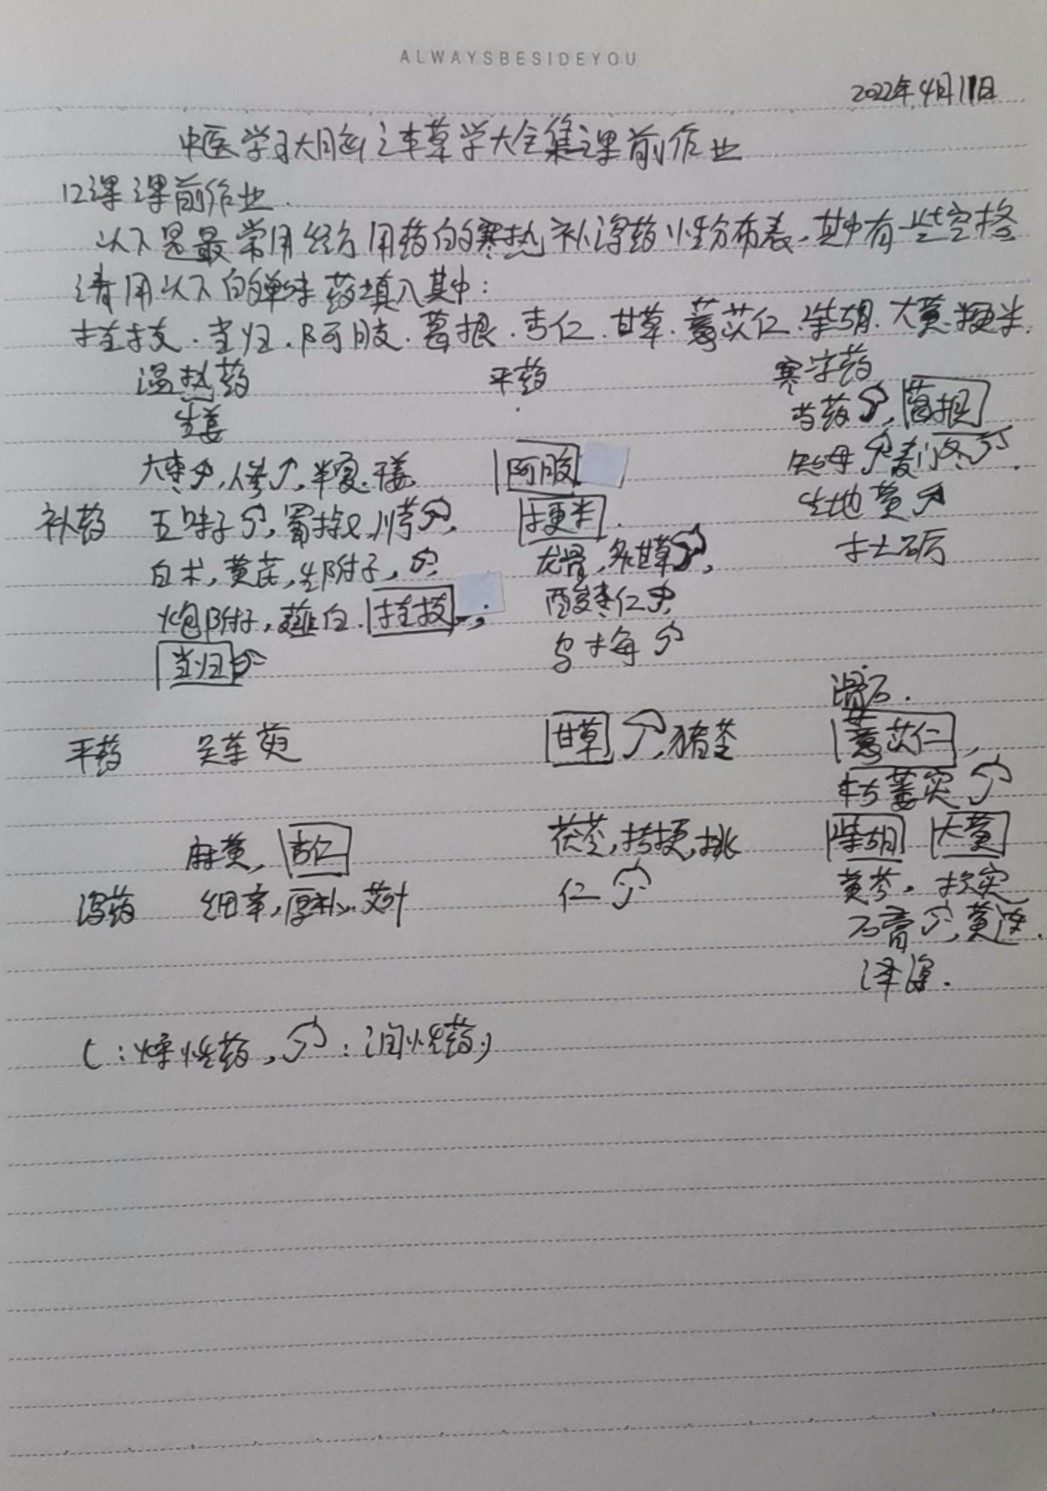 ALWAYSBESIDEYOU
2022年4月11日
中医学习大脑之本草学大全集课前作业
12课课前作业.
以下是最常用经方用药的寒热补泻药性分布表，其中有一些空格
请用以下的单味药填入其中：
桂枝.当归.阿胶.葛根.杏仁.甘草.薏苡仁.柴胡.大黄.粳米.
温热药 平药 寒凉药
生姜 芍药，葛根
大枣，人参，半夏.干姜 阿胶 知母，麦门冬，
补药 五味子，蜀椒，川芎， 粳米. 生地黄
白术，黄芪，生附子， 龙骨，炙甘草， 牡蛎
炮附子，薤白.桂枝， 酸枣仁
当归 乌梅
滑石.
平药 吴茱萸 甘草，猪苓 薏苡仁，
栝蒌实
麻黄，杏仁 茯苓，桔梗，桃 柴胡 大黄
泻药 细辛，厚朴，艾叶 仁 黄芩，枳实
石膏，黄连，
泽泻.
（：燥性药，：润性药）